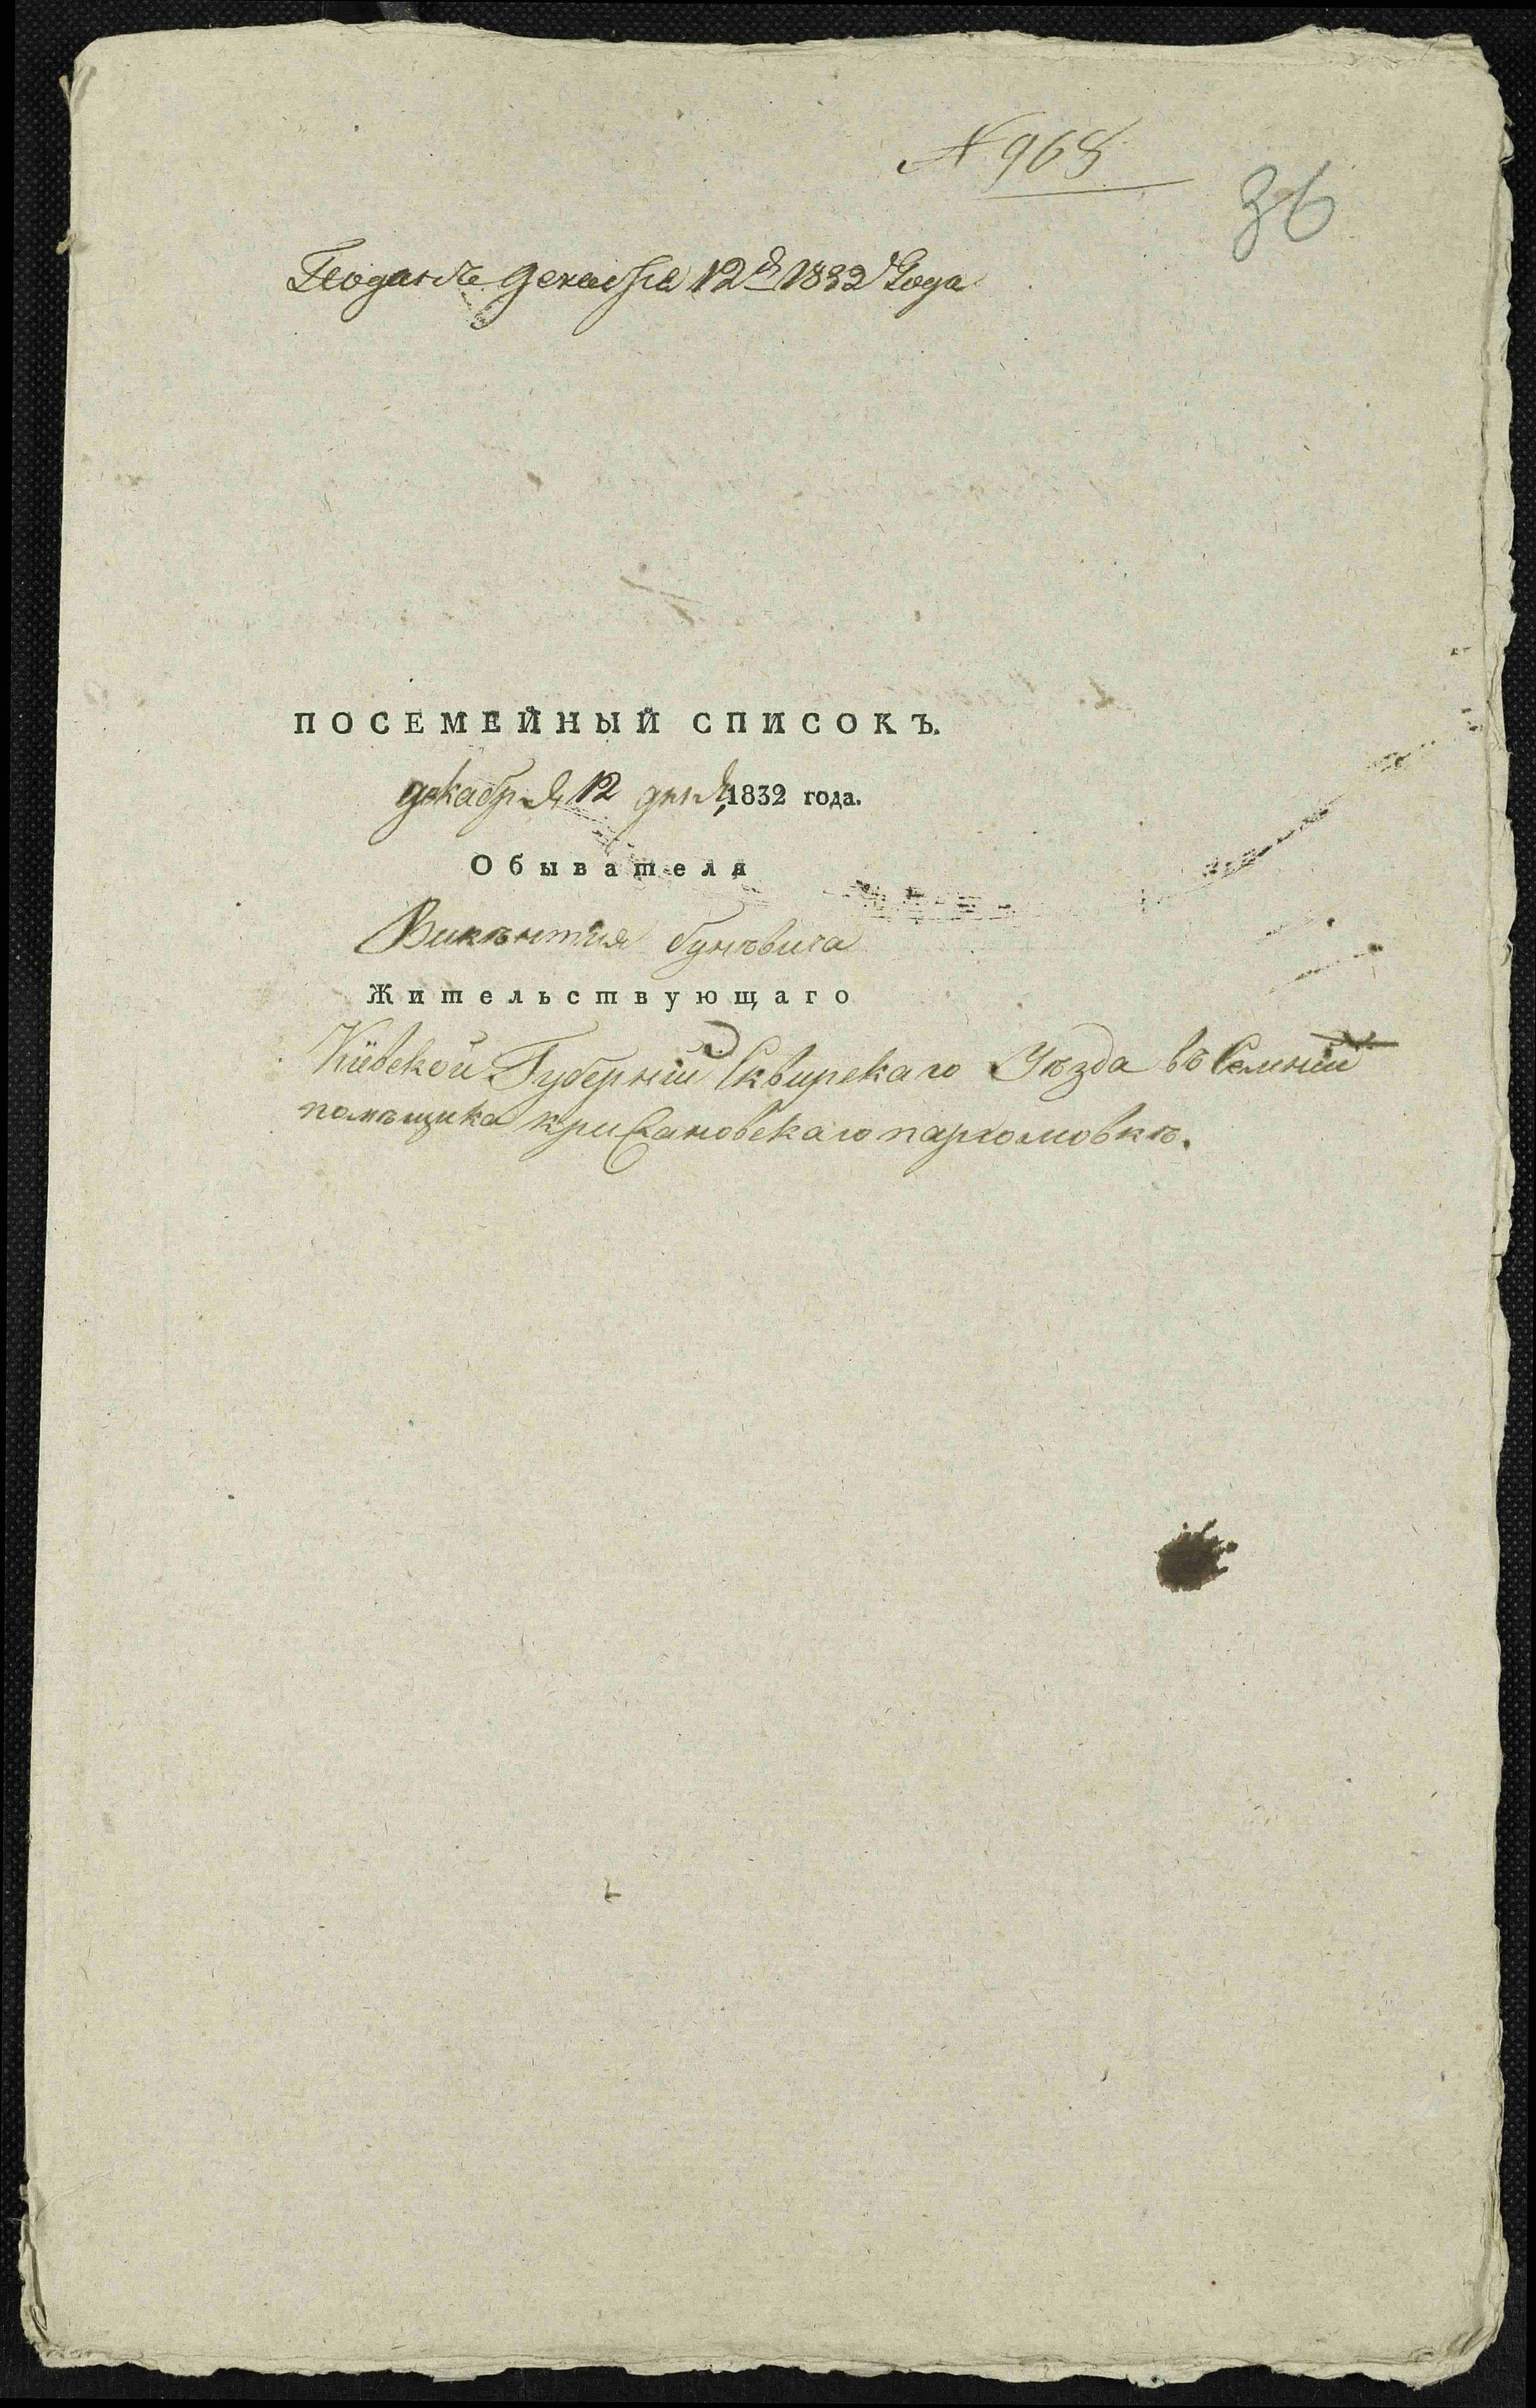 № 968
36
Поданъ декабря 12 д 1832 Года
ПОСЕМЕЙНЫЙ СПИСОКЪ.
декабря 12 дня 1832 года.
Обывателя
Викѣнтия бунѣвича
Жительствующаго
Кіевской Губерніи Сквирскаго Уѣзда въ Селеніи
помѣщика крисановскаго пархомовкѣ.